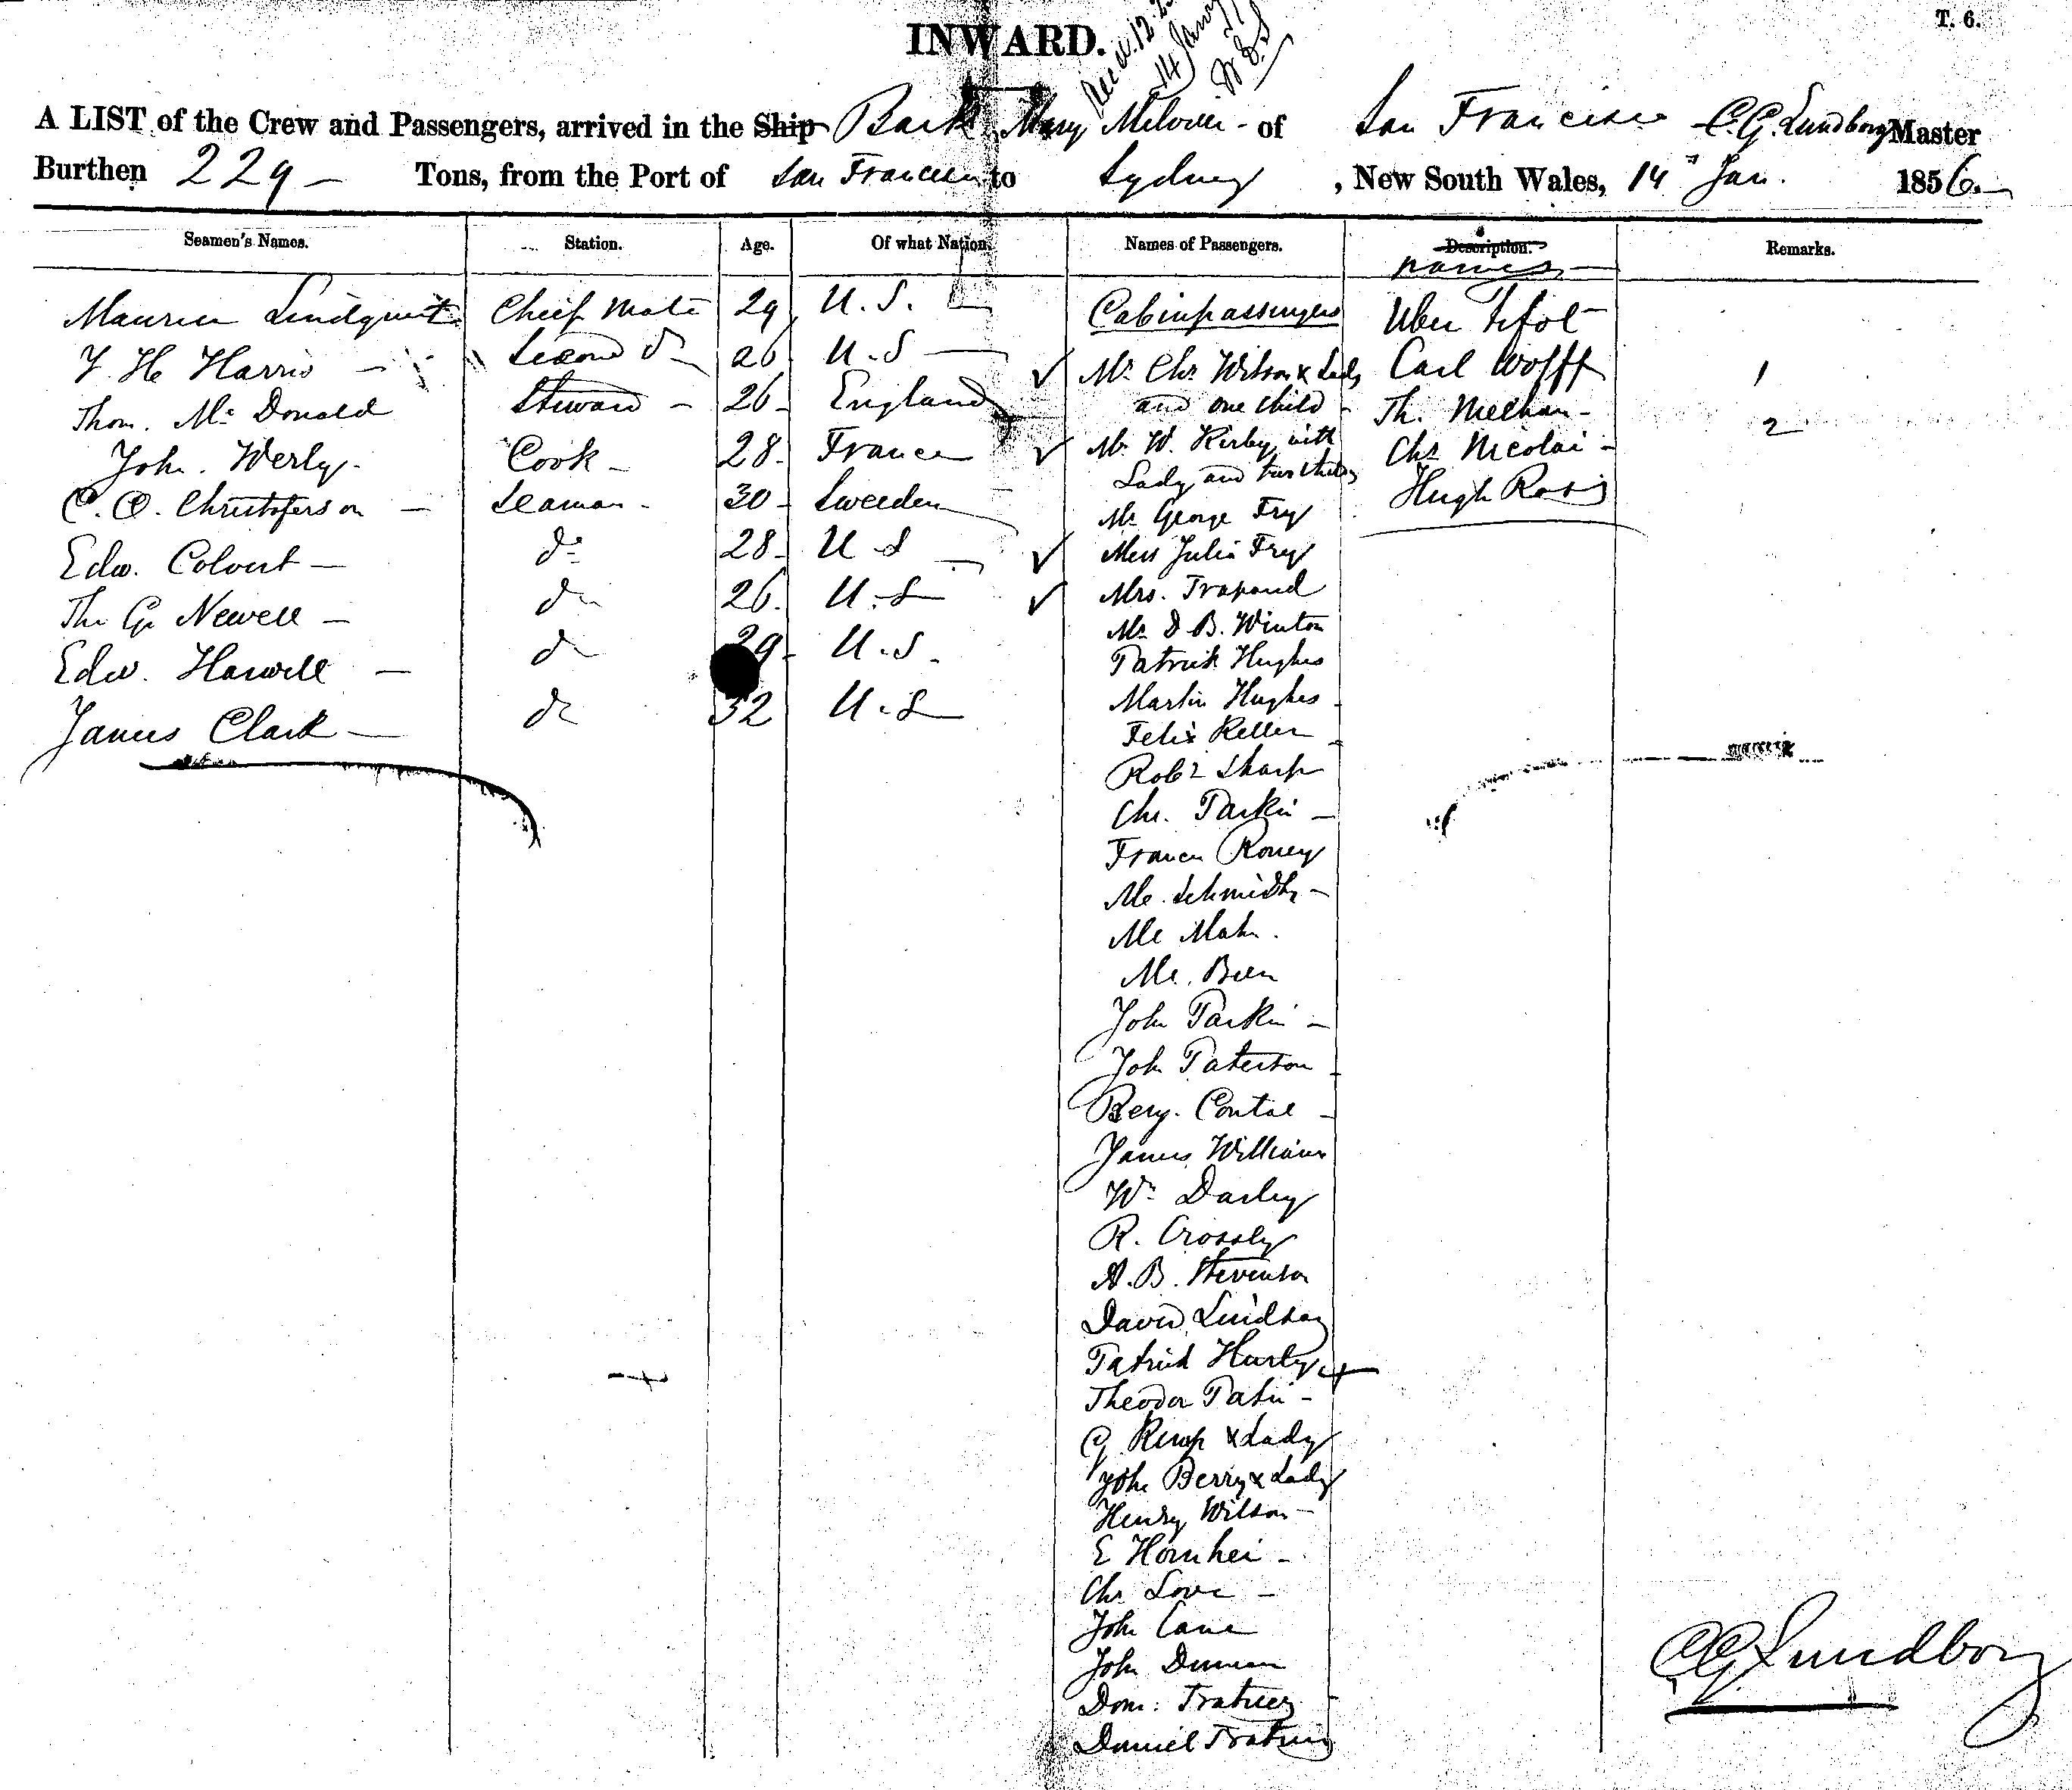 T. 6.
INWARD.
14 Jany
A LIST of the Crew and Passengers, arrived in the Ship Bark Mary Melville of San Francisco C. G. Lundborg Master
Burthen 229 Tons, from the Port of San Francisco to Sydney, New South Wales, 14 Jan. 1856.
Seamen's Names. Station. Age. Of what Nation. Names of Passengers. Description. Remarks.
names
Maurice Lindquist Chief Mate 29 U. S.
Y. H. Harris Second do 26 U. S
Thom. Mc Donald Steward 26 England
John. Werly. Cook 28 France
C. O. Christoferson Seaman 30 Sweeden
Edw. Colvert do 28 U S
Th. G. Newell do 26 U. S
Edw. Harwell do 29 U. S.
James Clark do 32 U. S
Cabinpassengers
Mr. Chr. Wilson & Lady
and one child
Mr. W. Kirby with
Lady and two childs
Mr George Fry
Miss Julia Fry
Mrs. Trapand
Mr D. B. Winton
Patrick Hughes
Martin Hughes
Felix Keller
Robt Sharp
Chr. Parkin
Francis Roney
Mr. Schmidt
Mr Mahr.
Mr. Been
John Parkin
John Paterson
Benj. Contal
James Williams
Wm Darley
R. Crossly
A. B. Stevenson
David Lindsay
Patrick Hurly
Theodor Patin
G. Kemp & Lady
John Berry & Lady
Henry Wilson
E Hornhei
Chr Love
John Cane
John Duncan
Dom:
Daniel
Carl Wolff
Th. Meehan
Chr Nicolai
Hugh Ross
1
2
C G Lundborg